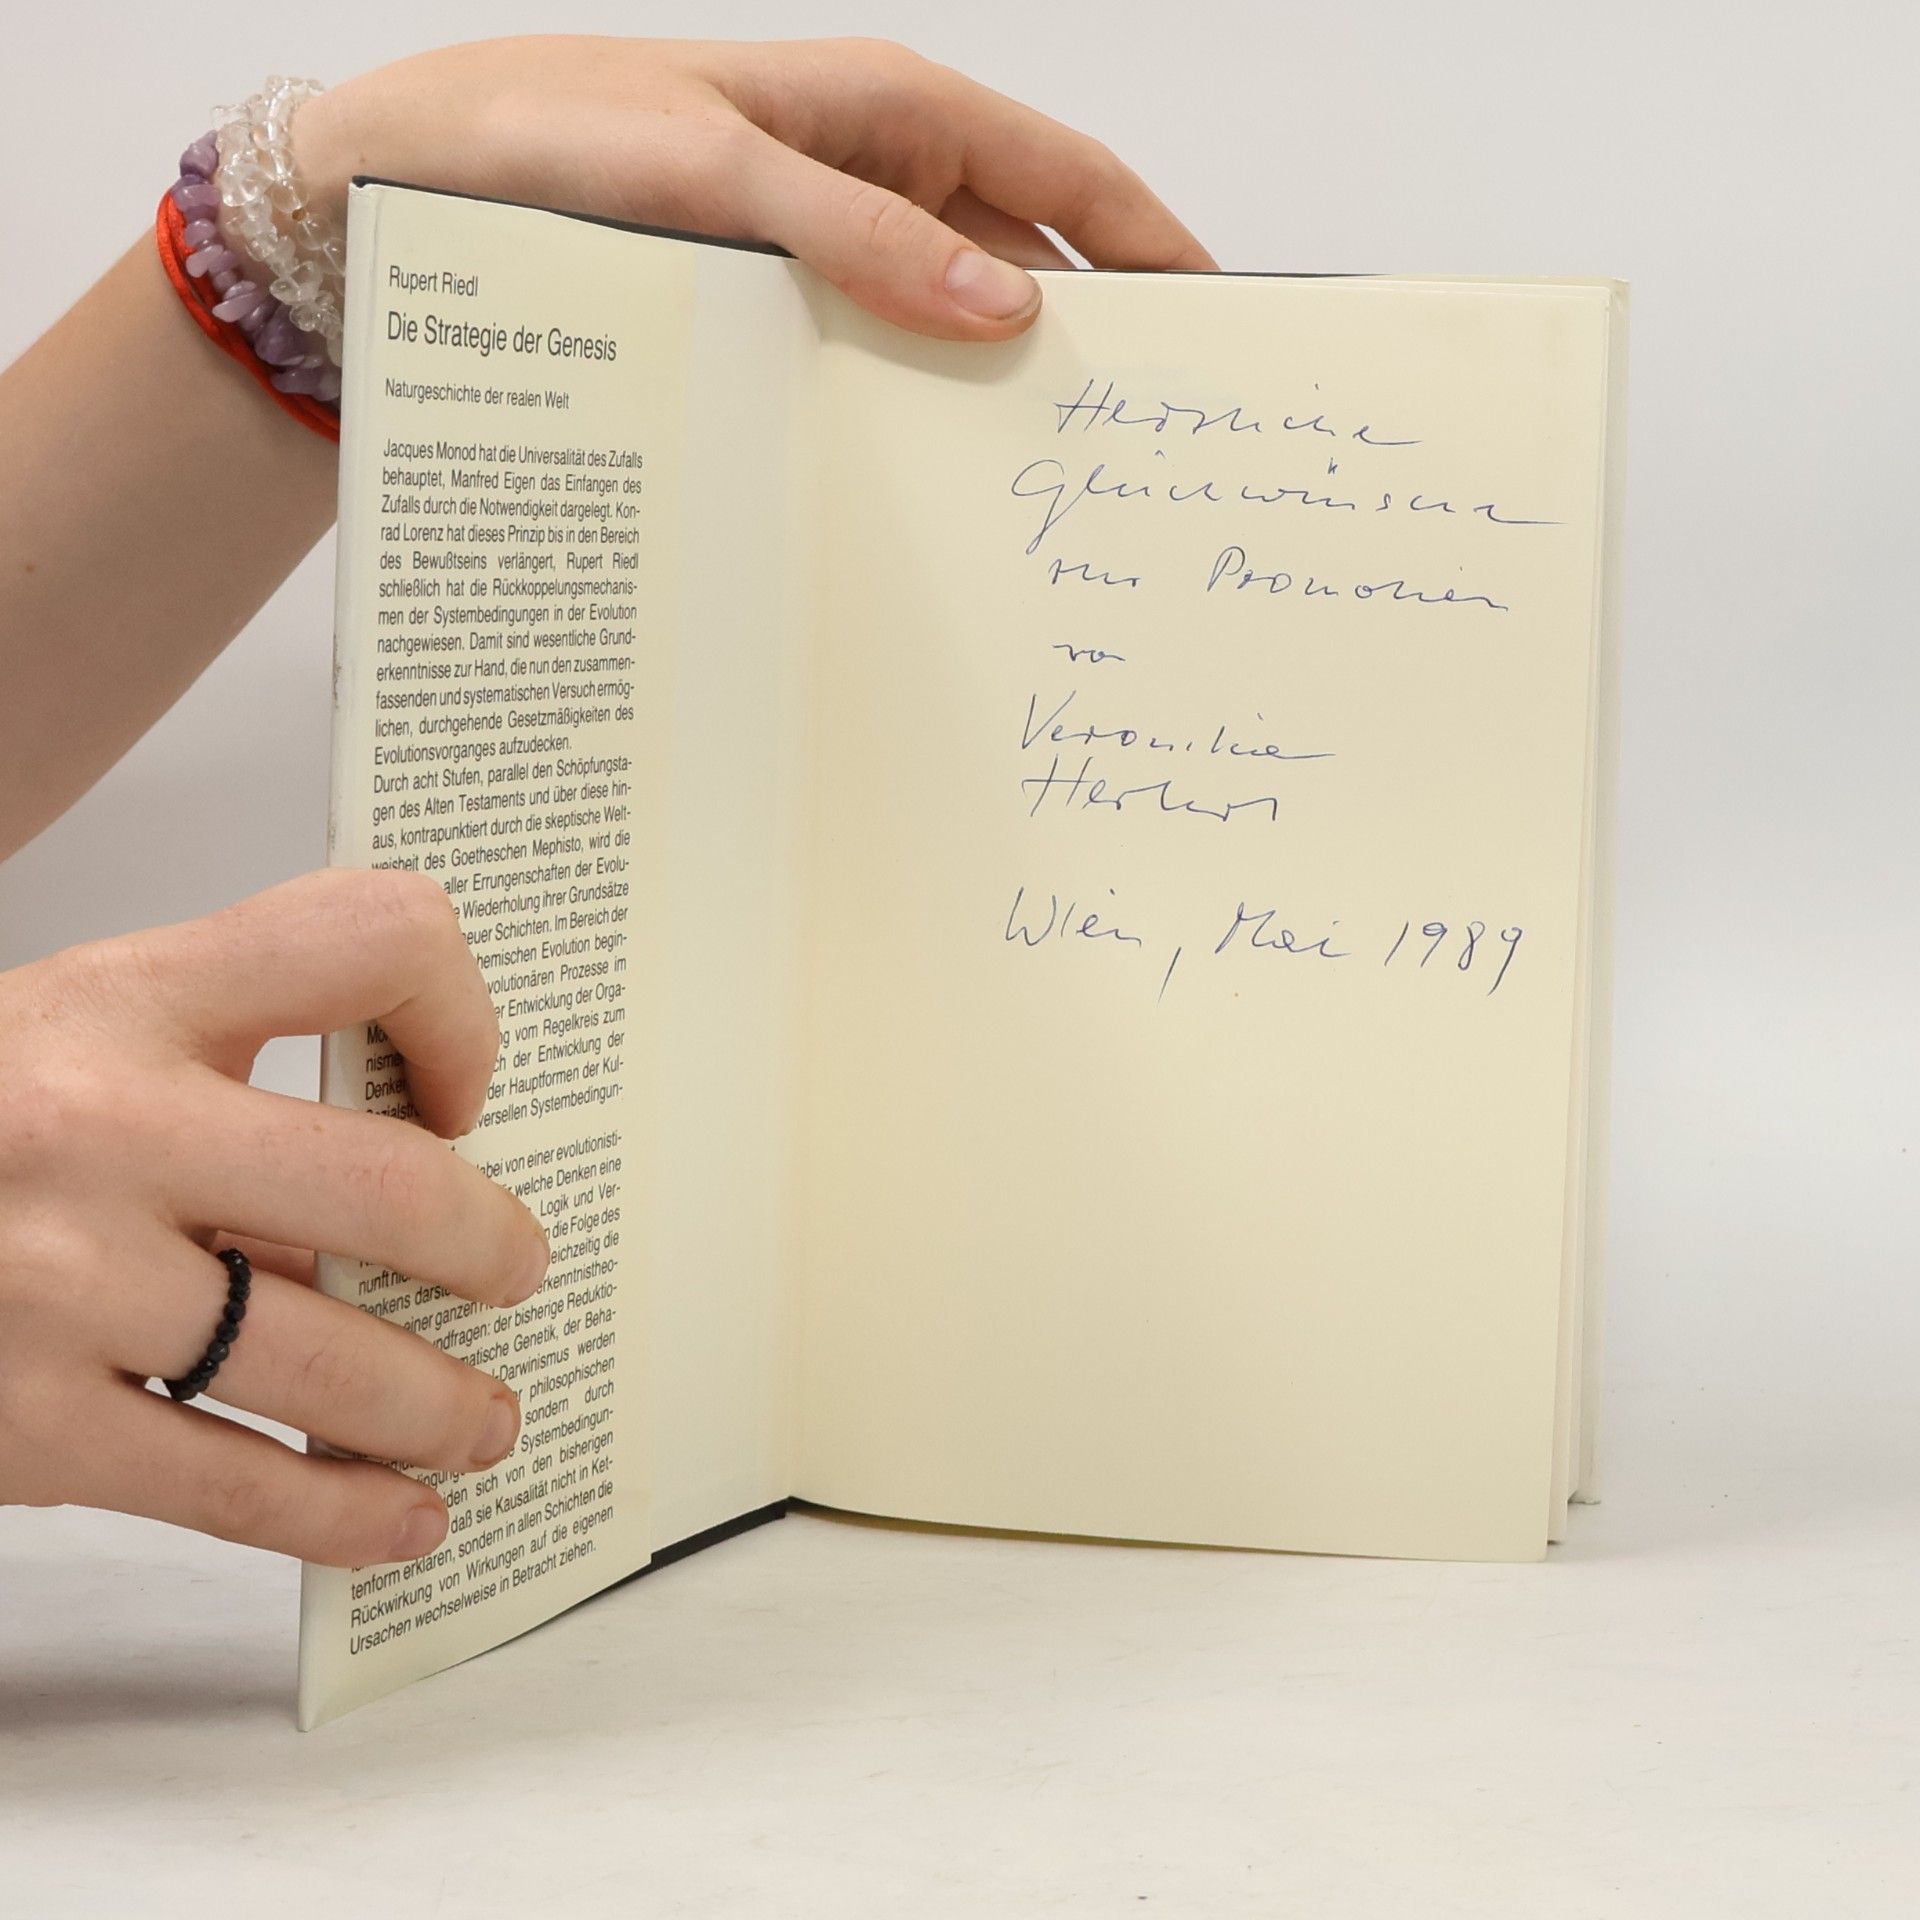 Rupert Riedl
Die Strategie der Genesis
Naturgeschichte der realen Welt
Jacques Monod hat die Universalität des Zufalls
behauptet, Manfred Eigen das Einfangen des
Zufalls durch die Notwendigkeit dargelegt. Kon-
rad Lorenz hat dieses Prinzip bis in den Bereich
des Bewußtseins verlängert, Rupert Riedl
schließlich hat die Rückkoppelungsmechanis-
men der Systembedingungen in der Evolution
nachgewiesen. Damit sind wesentliche Grund-
erkenntnisse zur Hand, die nun den zusammen-
fassenden und systematischen Versuch ermög-
lichen, durchgehende Gesetzmäßigkeiten des
Evolutionsvorganges aufzudecken.
Durch acht Stufen, parallel den Schöpfungsta-
gen des Alten Testaments und über diese hin-
aus, kontrapunktiert durch die skeptische Welt-
weisheit des Goetheschen Mephisto, wird die
aller Errungenschaften der Evolu-
Wiederholung ihrer Grundsätze
neuer Schichten. Im Bereich der
hemischen Evolution begin-
volutionären Prozesse im
er Entwicklung der Orga-
vom Regelkreis zum
nisme der Entwicklung der
Denke der Hauptformen der Kul-
versellen Systembedingun-
abei von einer evolutionisti-
welche Denken eine
Logik und Ver-
die Folge des
eichzeitig die
nunft rkenntnistheo-
Denkens der bisherige Reduktio-
einer ganzen
ndfragen: matische Genetik, der Beha-
-Darwinismus werden
philosophischen
sondern durch
Systembedingun-
den sich von den bisherigen
daß sie Kausalität nicht in Ket-
tenform erklären, sondern in allen Schichten die
Rückwirkung von Wirkungen auf die eigenen
Ursachen wechselweise in Betracht ziehen.
Herzliche
Glückwünsche
zur Promotion
von
Veronika
Herbert
Wien, Mai 1989